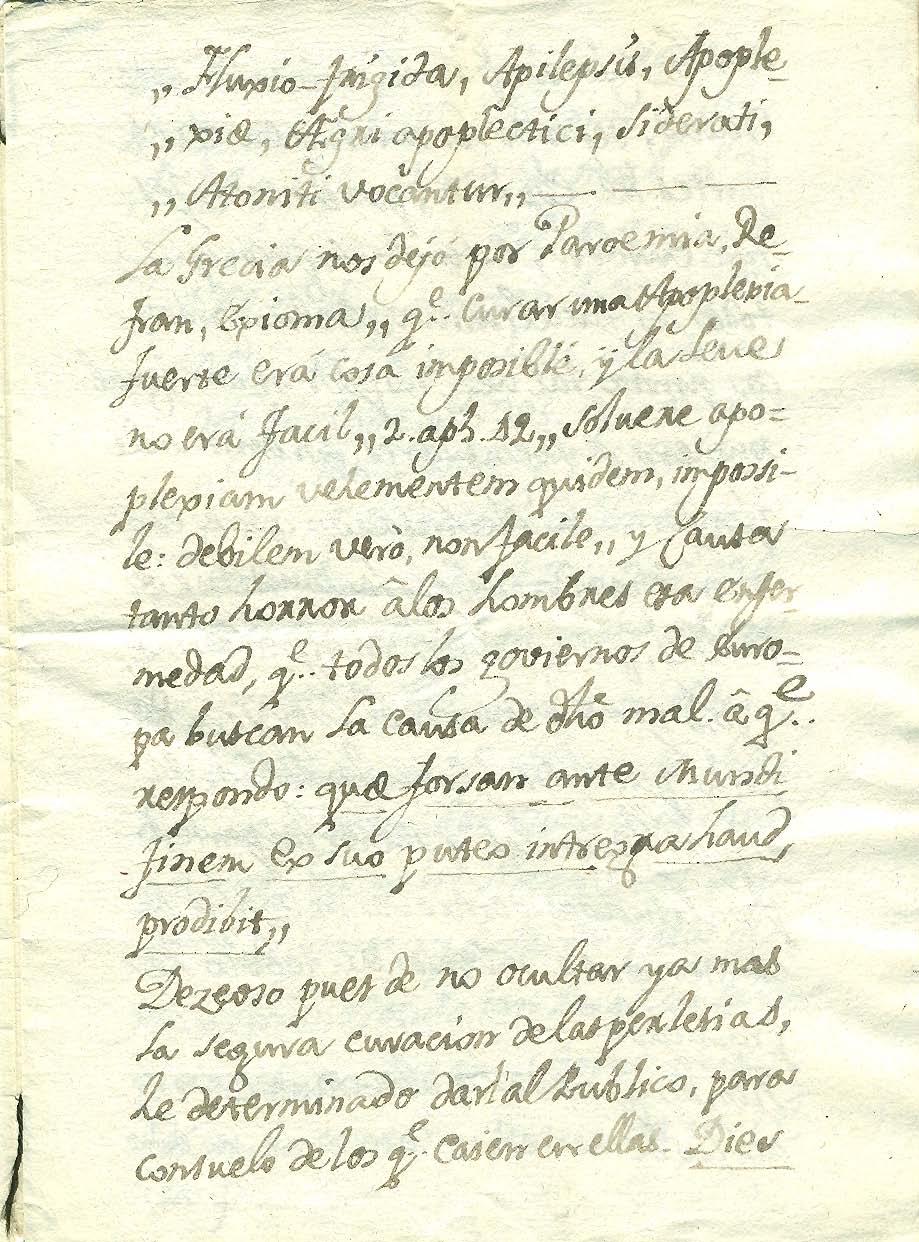 ,, Fluxio frigida, Apilepsis, Apople-
,, xiæ, Ægri apoplectici, siderati,
,, Atoniti vocantur,, — — —
La Grecia nos dejó por Paroemia, Re-
fran, Exioma,, q.e curar una Apoplexia
fuerte erá cosa imposiblé, y la Leve
no erá facil,, 2. aph. 42,, solvere apo=
plexiam veementem quidem, impossi-
le: debilem verò, non facile,, y causa
tanto horror â los hombres esa enfer-
medad, q.e todos los goviernos de Euro=
pa buscan la causa de dho mal. â q.e
respondo: quæ forsan ante Mundi
finem ex suo puteo intregra haud,
prodibit,,
Dezeoso pues de no ocultar ya mas
la segura curacion de las perlesias,
he determinado darl'al Publico, para
consuelo de los q.e caien en ellas. Dies